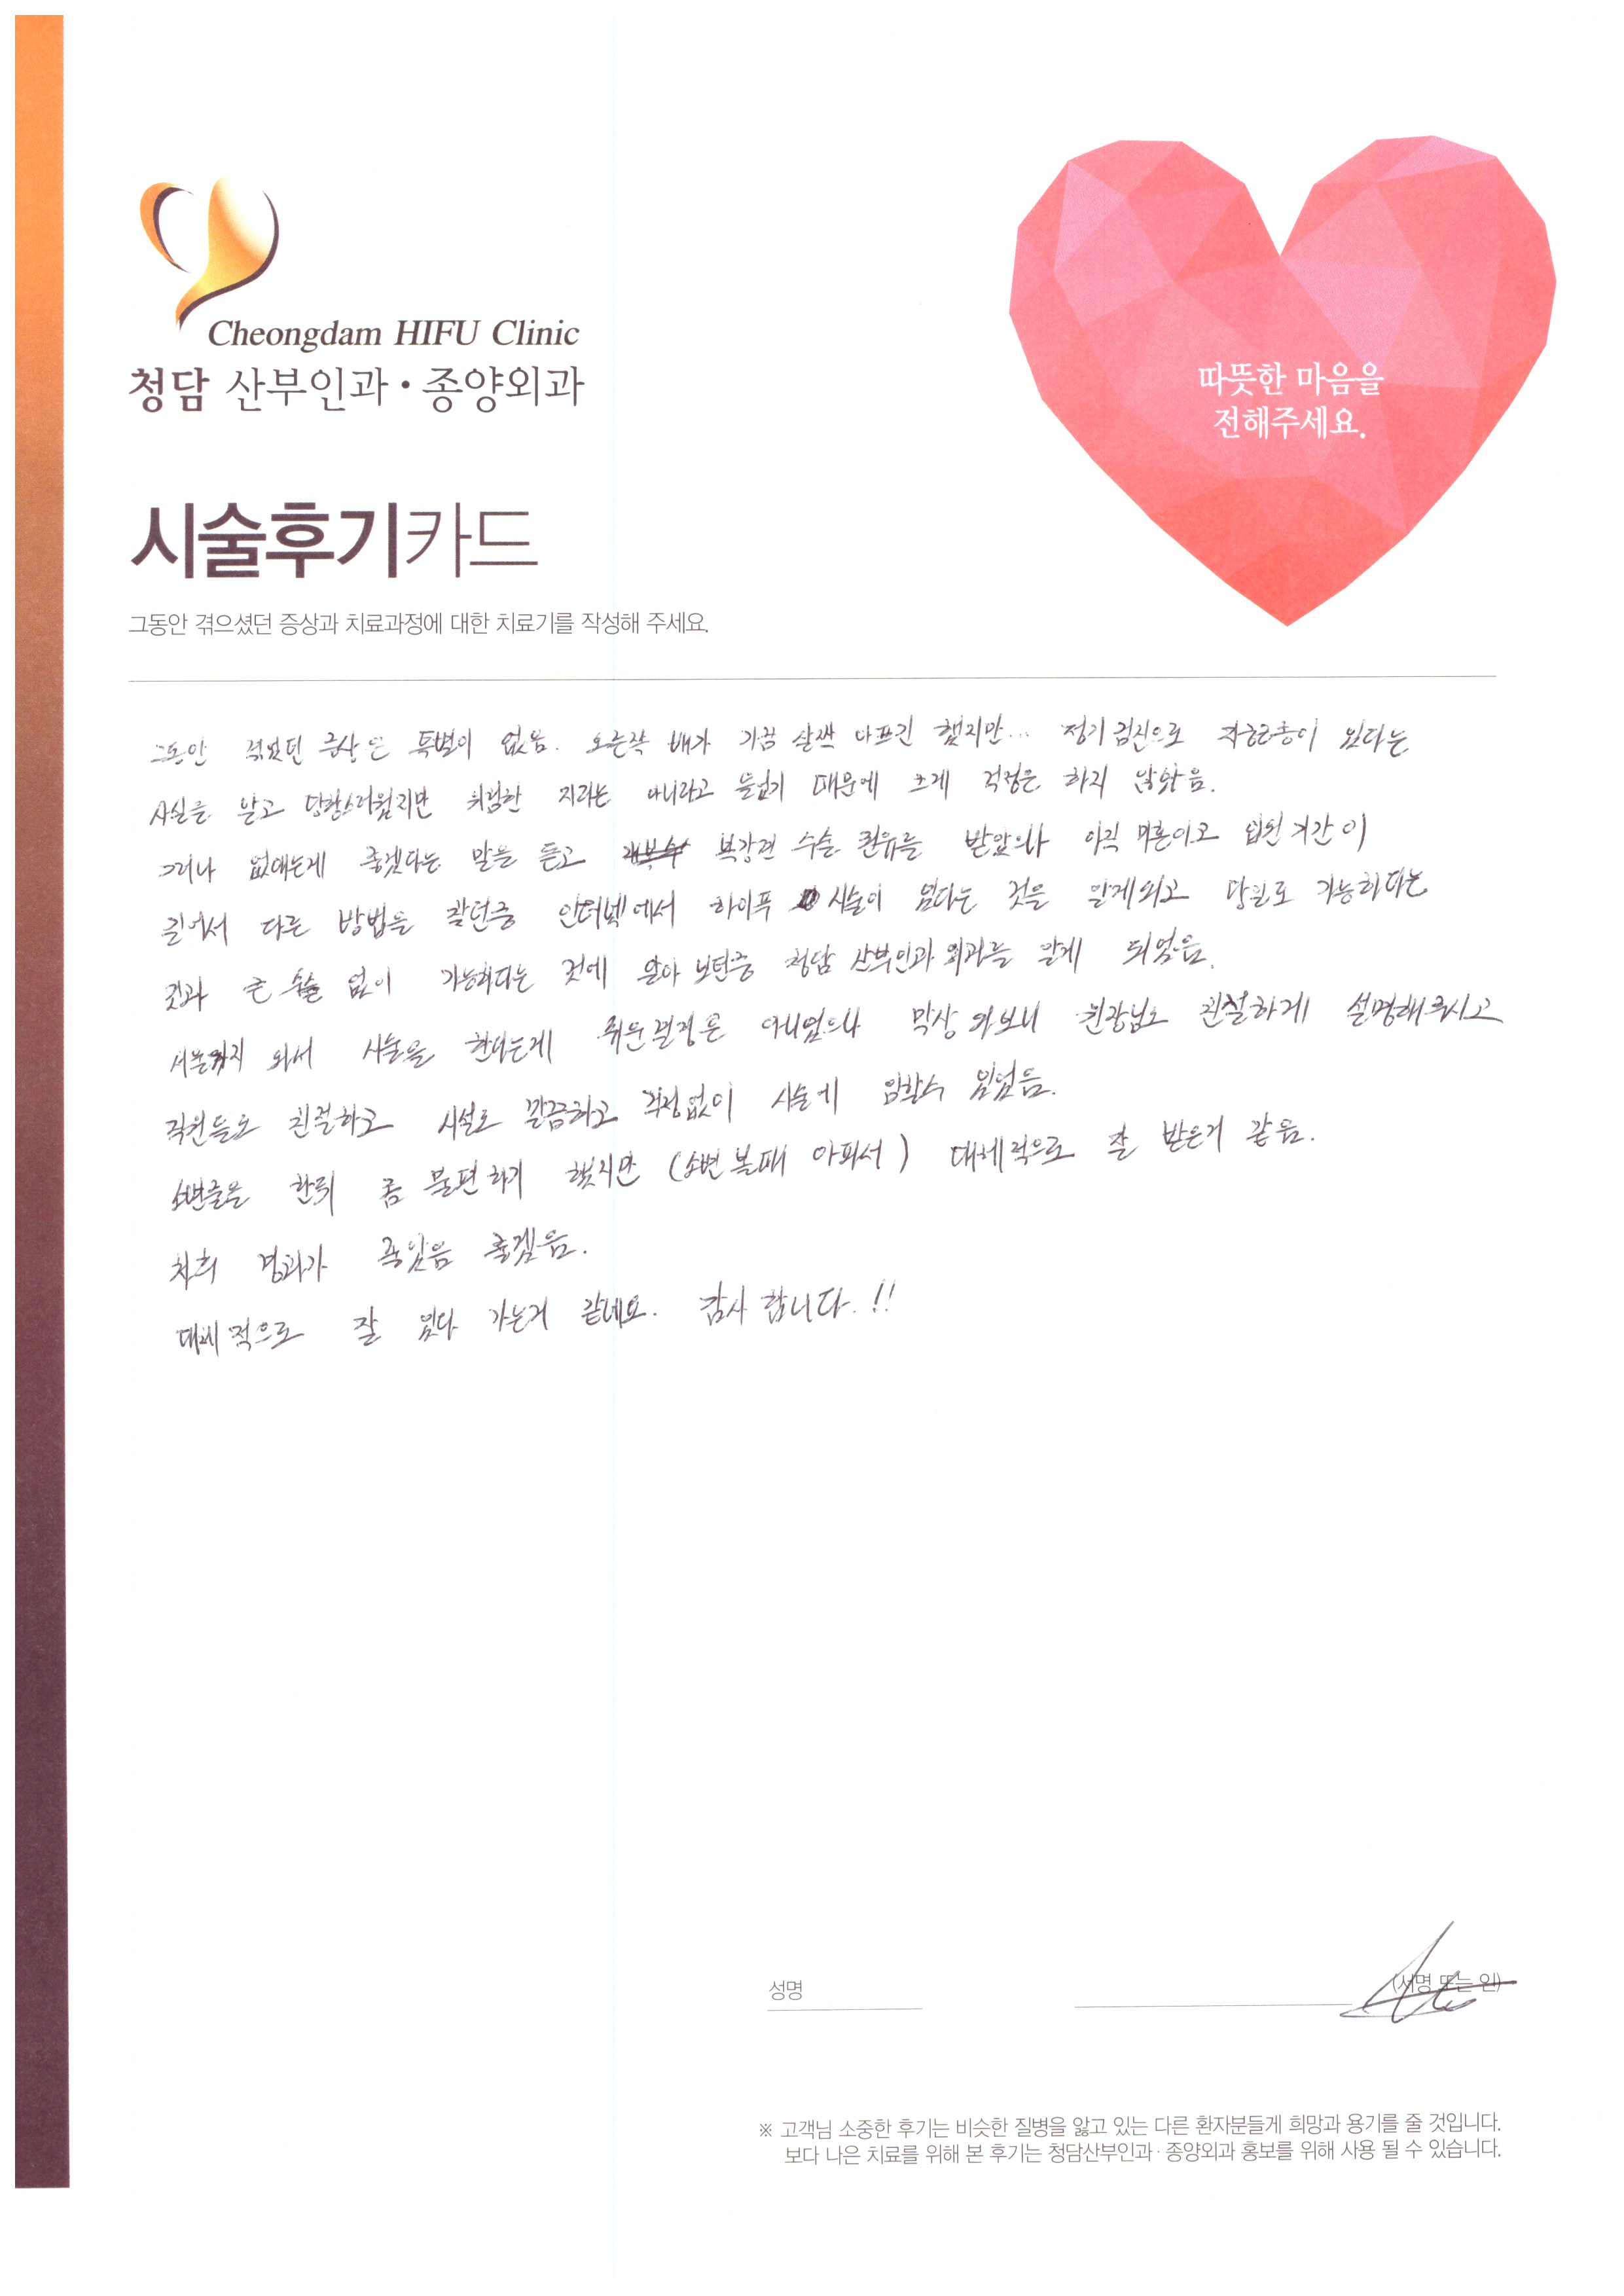 Cheongdam HIFU Clinic
청담 산부인과·종양외과
따뜻한 마음을
전해주세요.
시술후기카드
그동안 겪으셨던 증상과 치료과정에 대한 치료기를 작성해 주세요.
그동안 겪었던 증상은 특별이 없음. 오른쪽 배가 가끔 살짝 아프긴 했지만... 정기검진으로 자궁근종이 있다는
사실을 알고 당황스러웠지만 위험한 지라는 아니라고 들었기 때문에 크게 걱정은 하지 않았음.
그러나 없애는게 좋겠다는 말을 듣고 복강경 수술 권유를 받았으나 아직 미혼이고 입원기간이
길어서 다른 방법을 찾던중 인터넷에서 하이푸 시술이 있다는 것을 알게되고 당일로 가능하다는
것과 큰 수술 없이 가능하다는 것에 알아 보던중 청담 산부인과 외과를 알게 되었음.
서울까지 와서 시술을 한다는게 쉬운결정은 아니었으나 막상 와보니 원장님도 친절하게 설명해주시고
직원들도 친절하고 시설도 깔끔하고 걱정없이 시술에 임할수 있었음.
소변줄을 한뒤 좀 불편하기 했지만 (소변볼때 아파서) 대체적으로 잘 받은거 같음.
차후 경과가 좋았음 좋겠음.
대체적으로 잘 있다 가는거 같네요. 감사합니다.!!
성명
(서명 또는 인)
※ 고객님 소중한 후기는 비슷한 질병을 앓고 있는 다른 환자분들게 희망과 용기를 줄 것입니다.
보다 나은 치료를 위해 본 후기는 청담산부인과·종양외과 홍보를 위해 사용 될 수 있습니다.